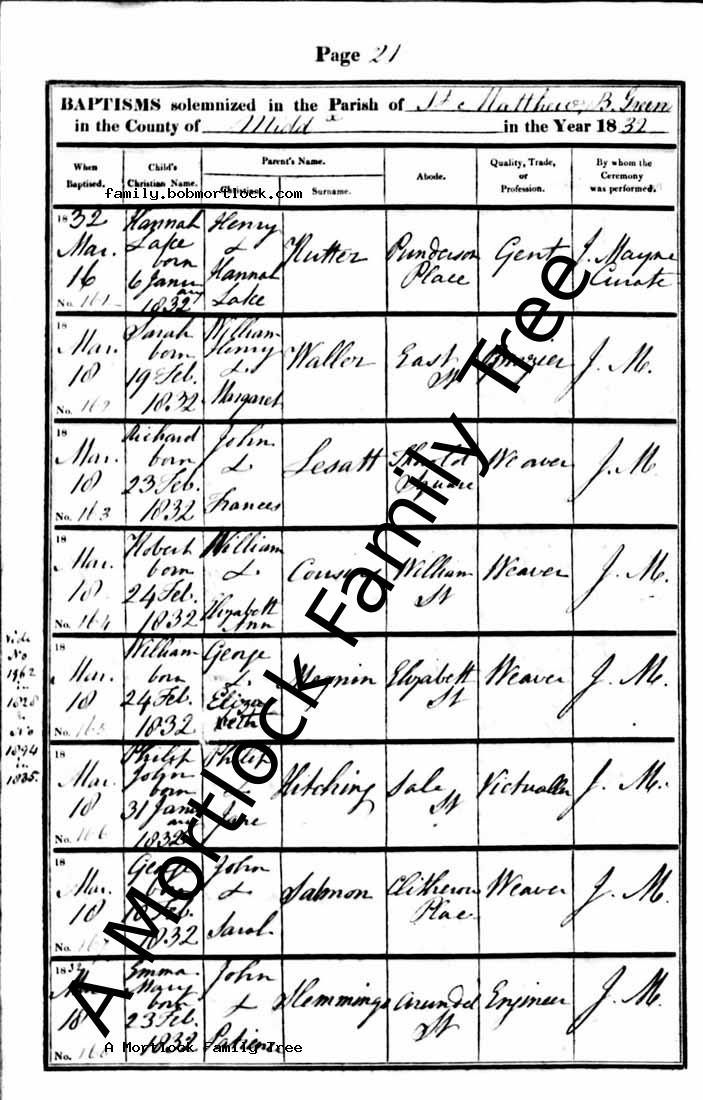 Page 21
BAPTISMS solemnized in the Parish of St. Matthew, B. Green
in the County of Midd x in the Year 18 32
When Baptised.
Child's Christian Name.
Parent's Name.
Christian.
Surname.
Abode.
Quality, Trade, or Profession.
By whom the Ceremony was performed.
family.bobmortlock.com
1832 Mar. 16 No. 161
Hannah Lake born 6 January 1832
Henry & Hannah Lake
Rutter
Punderson Place
Gent
J. Mayne Curate
18 Mar. 18 No. 162
Sarah born 19 Feb. 1832
William Henry & Margaret
Waller
East St
J. M.
18 Mar. 18 No. 163
Richard born 23 Feb. 1832
John & Frances
Lesatt
Square
Weaver
J. M.
18 Mar. 18 No. 164
Robert born 24 Feb. 1832
William & Elizabeth Ann
William St
Weaver
J. M.
18 Mar. 18 No. 165
William born 24 Feb. 1832
George & Elizabeth
Elizabeth St
Weaver
J. M.
Vide No 1962 in 1828 & No 1894 in 1835.
18 Mar. 18 No. 166
Philip John born 31 January 1832
Philip & Jane
Hitching
Sale St
Victualler
J. M.
18 Mar. 18 No. 167
George born Feb. 1832
John & Sarah
Salmon
Clitheroe Place
Weaver
J. M.
1832 Mar. 18 No. 168
Emma Mary born 23 Feb. 1832
John &
Slemmings
Arundel St
Engineer
J. M.
A Mortlock Family Tree
A Mortlock Family Tree